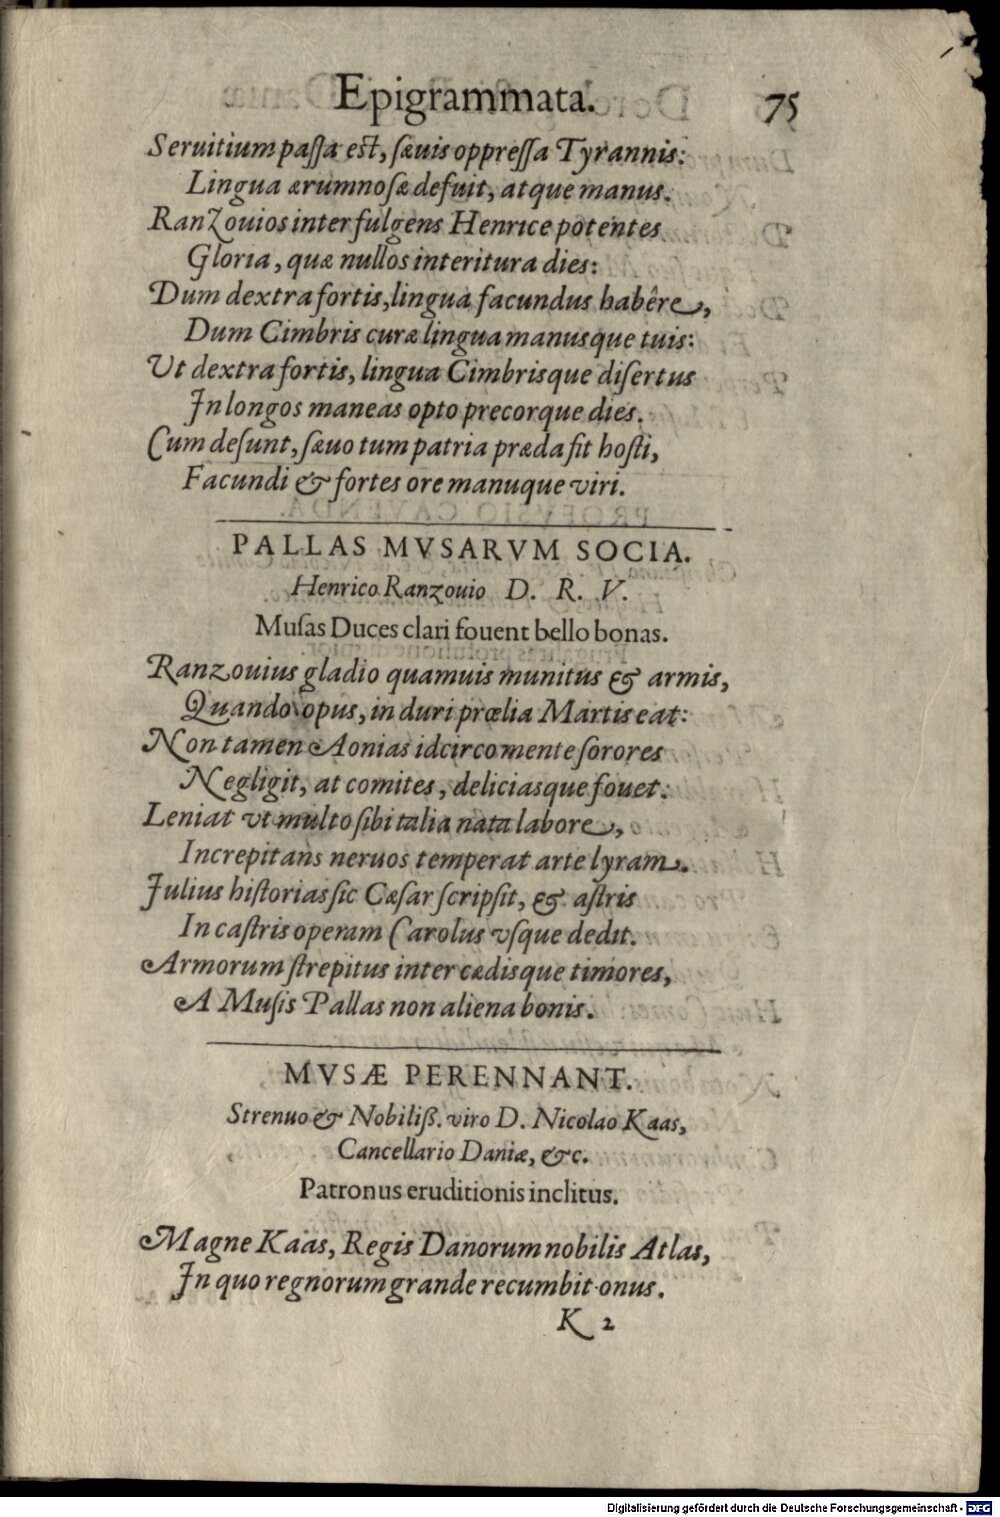 Epigrammata. 75
Seruitium paſſa est, ſæuis oppreſſa Tyrannis:
Lingua ærumnoſæ defuit, atque manus.
Ranzouios inter fulgens Henrice potentes
Gloria, quæ nullos interitura dies:
Dum dextra fortis, lingua facundus habêre,
Dum Cimbris curæ lingua manusque tuis:
Ut dextra fortis, lingua Cimbrisque diſertus
In longos maneas opto precorque dies.
Cum deſunt, ſæuo tum patria præda fit hoſti,
Facundi & fortes ore manuque viri.
PALLAS MVSARVM SOCIA.
Henrico Ranzouio D. R. V.
Muſas Duces clari fouent bello bonas.
Ranzouius gladio quamuis munitus & armis,
Quando opus, in duri prœlia Martis eat:
Non tamen Aonias idcirco mente ſorores
Negligit, at comites, deliciasque fouet.
Leniat vt multo ſibi talia nata labore,
Increpitans neruos temperat arte lyram.
Julius hiſtorias ſic Cæſar ſcripſit, & aſtris
In caſtris operam Carolus vſque dedit.
Armorum ſtrepitus inter cædisque timores,
A Muſis Pallas non aliena bonis.
MVSÆ PERENNANT.
Strenuo & Nobiliß. viro D. Nicolao Kaas,
Cancellario Daniæ, &c.
Patronus eruditionis inclitus.
Magne Kaas, Regis Danorum nobilis Atlas,
In quo regnorum grande recumbit onus.
K 2
Digitalisierung gefördert durch die Deutsche Forschungsgemeinschaft - DFG